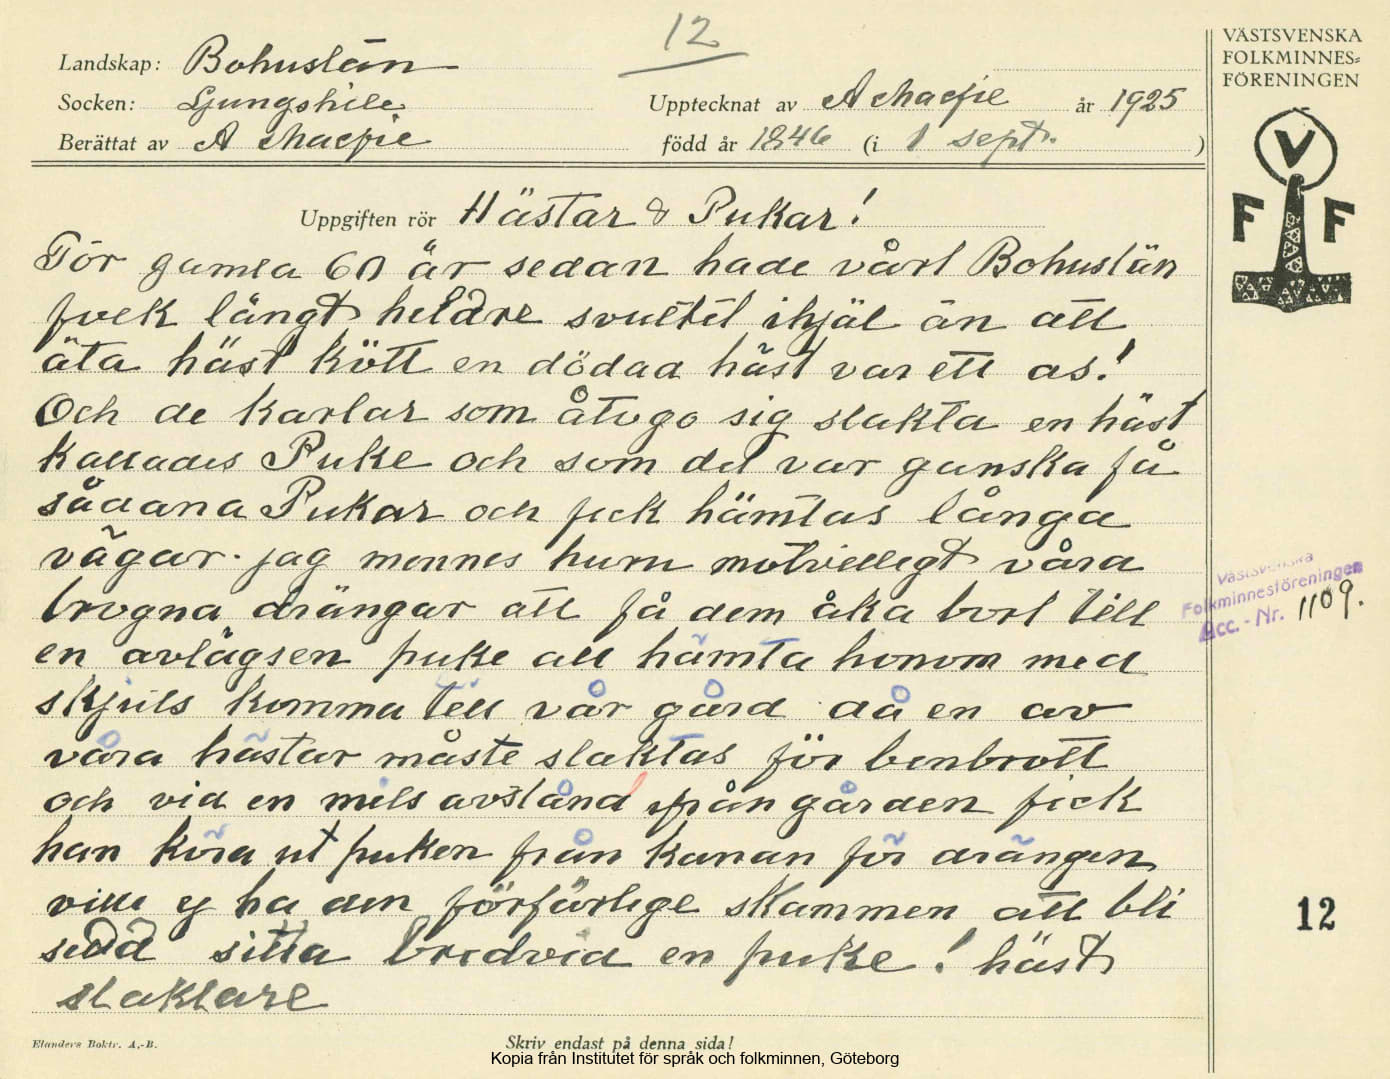 12
Landskap: Bohuslän
Socken: Ljungskile
Upptecknat av A Macfie år 1925
Berättat av A Macfie
född år 1846 (i 1 sept. )
VÄSTSVENSKA
FOLKMINNES=
FÖRENINGEN
V
F F
Uppgiften rör Hästar & Pukar!
För gamla 60 år sedan hade vårt Bohuslän
folk längt heldre svultit ihjäl än att
äta häst kött en dödad häst var ett as!
Och de karlar som åtogo sig slakta en häst
kallades Puke och som det var ganska få
sådana Pukar och fick hämtas långa
vägar. jag mennes huru motvilligt våra
brogna drängar att få dem åka bort till
en avlägsen puke att hämta honom med
skjuts komma till vår gård då en av
våra hästar måste slaktas för benbrott
och vid en mils avstånd från gården fick
han köra ut puken från kanan för drängen
ville ej ha den förfärlige skammen att bli
sedd sitta bredvid en puke! häst
slaktare
Västsvenska
Folkminnesföreningen
Acc.-Nr. 1109.
12
Elanders Boktr. A.-B.
Skriv endast på denna sida!
Kopia från Institutet för språk och folkminnen, Göteborg